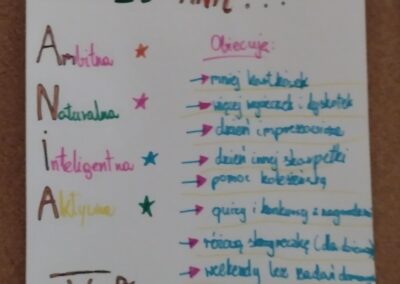 ANIA...
Ambitna
Naturalna
Inteligentna
Aktywna
Obiecuję:
mniej kartkówek
więcej wycieczek i dyskotek
dzień
dzień innej skarpetki
pomoc koleżeńską
quizy i konkursy z nagrodami
różową skrzyneczkę (dla dziewcz
weekendy bez zadań domowych